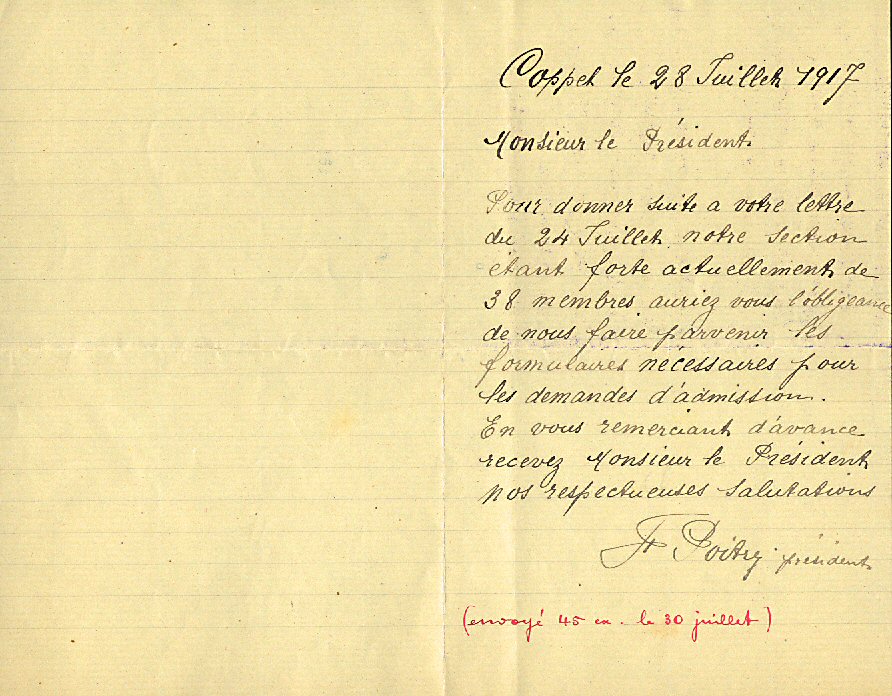 Coppet le 28 Juillet 1917
Monsieur le Président
Pour donner suite a votre lettre
du 24 Juillet notre section
étant forte actuellement de
38 membres auriez vous l'obligeance
de nous faire parvenir les
formulaires nécessaires pour
les demandes d'admission.
En vous remerciant d'avance
recevez Monsieur le Président
nos respectueuses salutations
Fr Poitry président
(envoyé 45 ex. le 30 juillet)